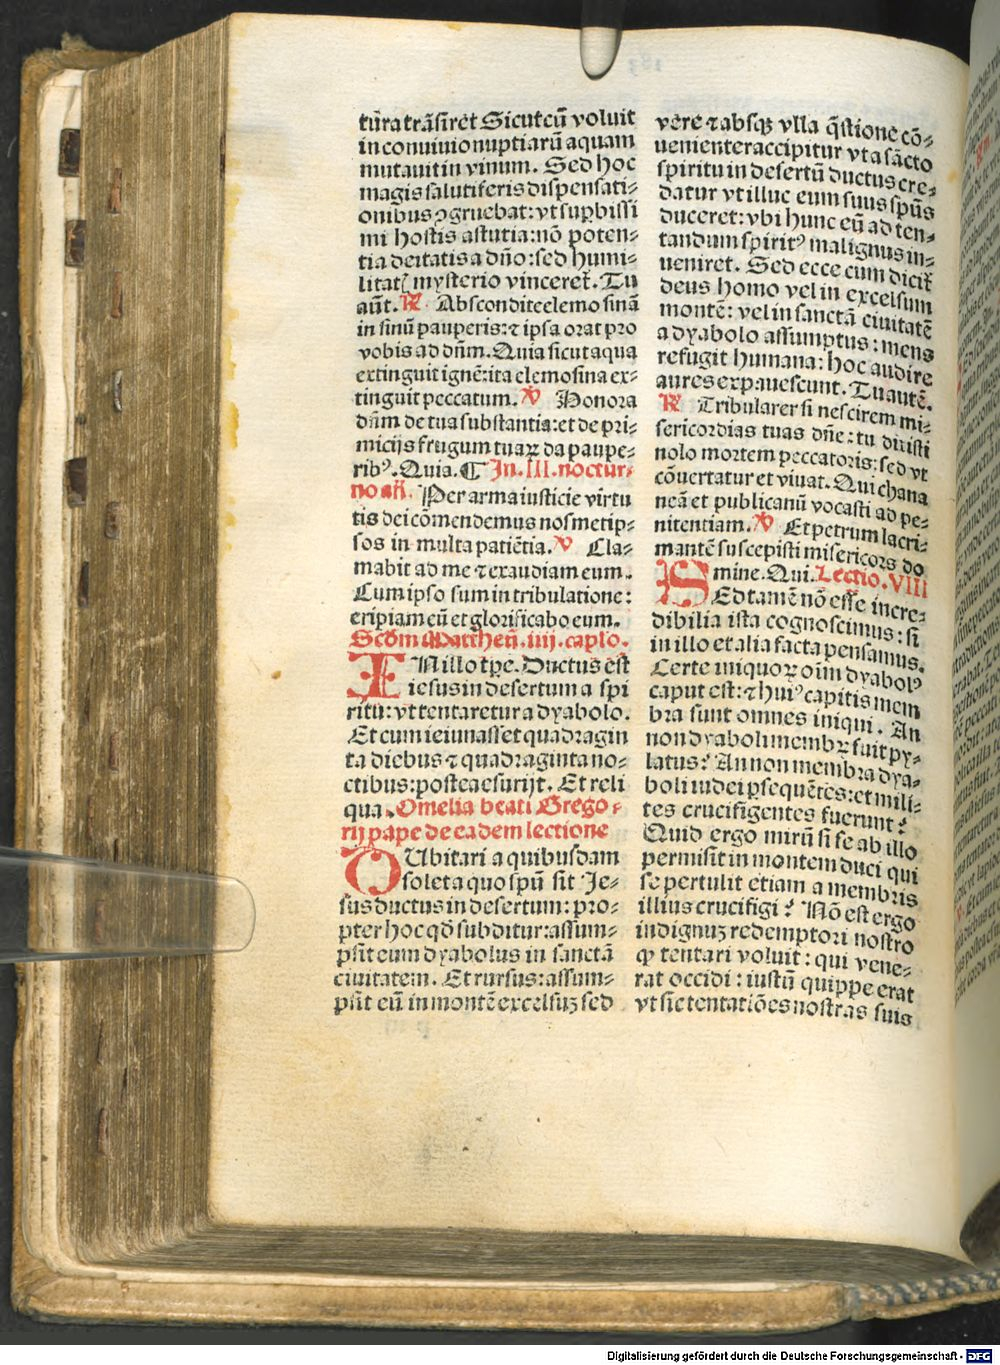 tura trãsiret Sicut cũ voluit
in conuiuio nuptiarũ aquam
mutauit in vinum. Sed hoc
magis salutiferis dispensati⸗
onibus ꝯgruebat: vt suꝑbissi
mi hostis astutia: nõ poten⸗
tia deitatis a dño: sed humi⸗
litatꝭ mysterio vinceret̃. Tu
aũt. ℟. Abscondite elemosinã
in sinũ pauperis: ⁊ ipsa orat pro
vobis ad dñm. Quia sicut aqua
extinguit ignẽ: ita elemosina ex⸗
tinguit peccatum. ℣ Honora
dñm de tua substantia: et de pri⸗
micijs frugum tuaꝝ da paupe⸗
ribꝰ. Quia. ¶ In. III. noctur⸗
no añ. Per arma iusticie virtu
tis dei cõmendemus nosmetip⸗
sos in multa patiẽtia. ℣ Cla⸗
mabit ad me ⁊ exaudiam eum.
Cum ipso sum in tribulatione:
eripiam eũ et glorificabo eum.
Scḋm Mattheũ. iiij. caplo.
IN illo tꝑe. Ductus est
iesus in desertum a spi
ritu: vt tentaretur a dyabolo.
Et cum ieiunasset quadragin
ta diebus ⁊ quadraginta no⸗
ctibus: postea esurijt. Et reli
qua. Omelia beati Grego⸗
rij pape de eadem lectione
DUbitari a quibusdam
solet a quo spũ sit Je⸗
sus ductus in desertum: pro⸗
pter hoc qḋ subditur: assum⸗
psit eum dyabolus in sanctã
ciuitatem. Et rursus: assum⸗
psit eũ in montẽ excelsuꝫ sed
vere ⁊ absqꝫ vlla q̃stione cõ⸗
uenienter accipitur vt a sãcto
spiritu in desertũ ductus cre⸗
datur vt illuc eum suus spũs
duceret: vbi hunc eũ ad ten⸗
tandum spiritꝰ malignus in⸗
ueniret. Sed ecce cum dicit̃
deus homo vel in excelsum
montẽ: vel in sanctã ciuitatẽ
a dyabolo assumptus: mens
refugit humana: hoc audire
aures expauescunt. Tu autẽ.
℟ Tribularer si nescirem mi⸗
sericordias tuas dñe: tu dixisti
nolo mortem peccatoris: sed vt
cõuertatur et viuat. Qui chana
neã et publicanũ vocasti ad pe⸗
nitentiam. ℣ Et petrum lacri⸗
mantẽ suscepisti misericors do
mine. Qui. Lectio. VIII
SEd tamẽ nõ esse incre⸗
dibilia ista cognoscimus: si
in illo et alia facta pensamus.
Certe iniquoꝝ oĩm dyabolꝰ
caput est: ⁊ huiꝰ capitis mem
bra sunt omnes iniqui. An
non dyaboli membꝝ fuit py⸗
latus? An non membra dya⸗
boli iudei ꝑsequẽtes: et mili⸗
tes crucifigentes fuerunt?
Quid ergo mirũ si se ab illo
permisit in montem duci qui
se pertulit etiam a membris
illius crucifigi? Nõ est ergo
indignuꝫ redemptori nostro
ꝙ tentari voluit: qui vene⸗
rat occidi: iustũ quippe erat
vt sic tentatiões nostras suis
Digitalisierung gefördert durch die Deutsche Forschungsgemeinschaft - DFG